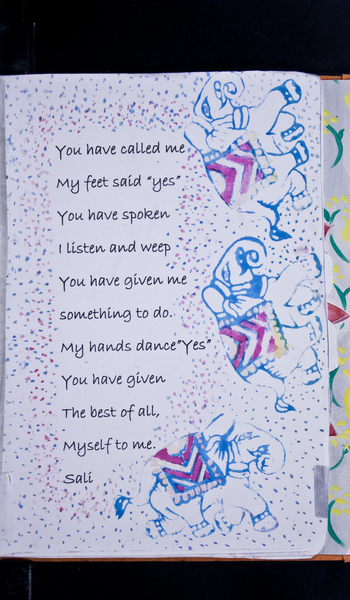 You have called me
My feet said "yes"
You have spoken
I listen and weep
You have given me
something to do.
My hands dance"Yes"
You have given
The best of all,
Myself to me.
Sali